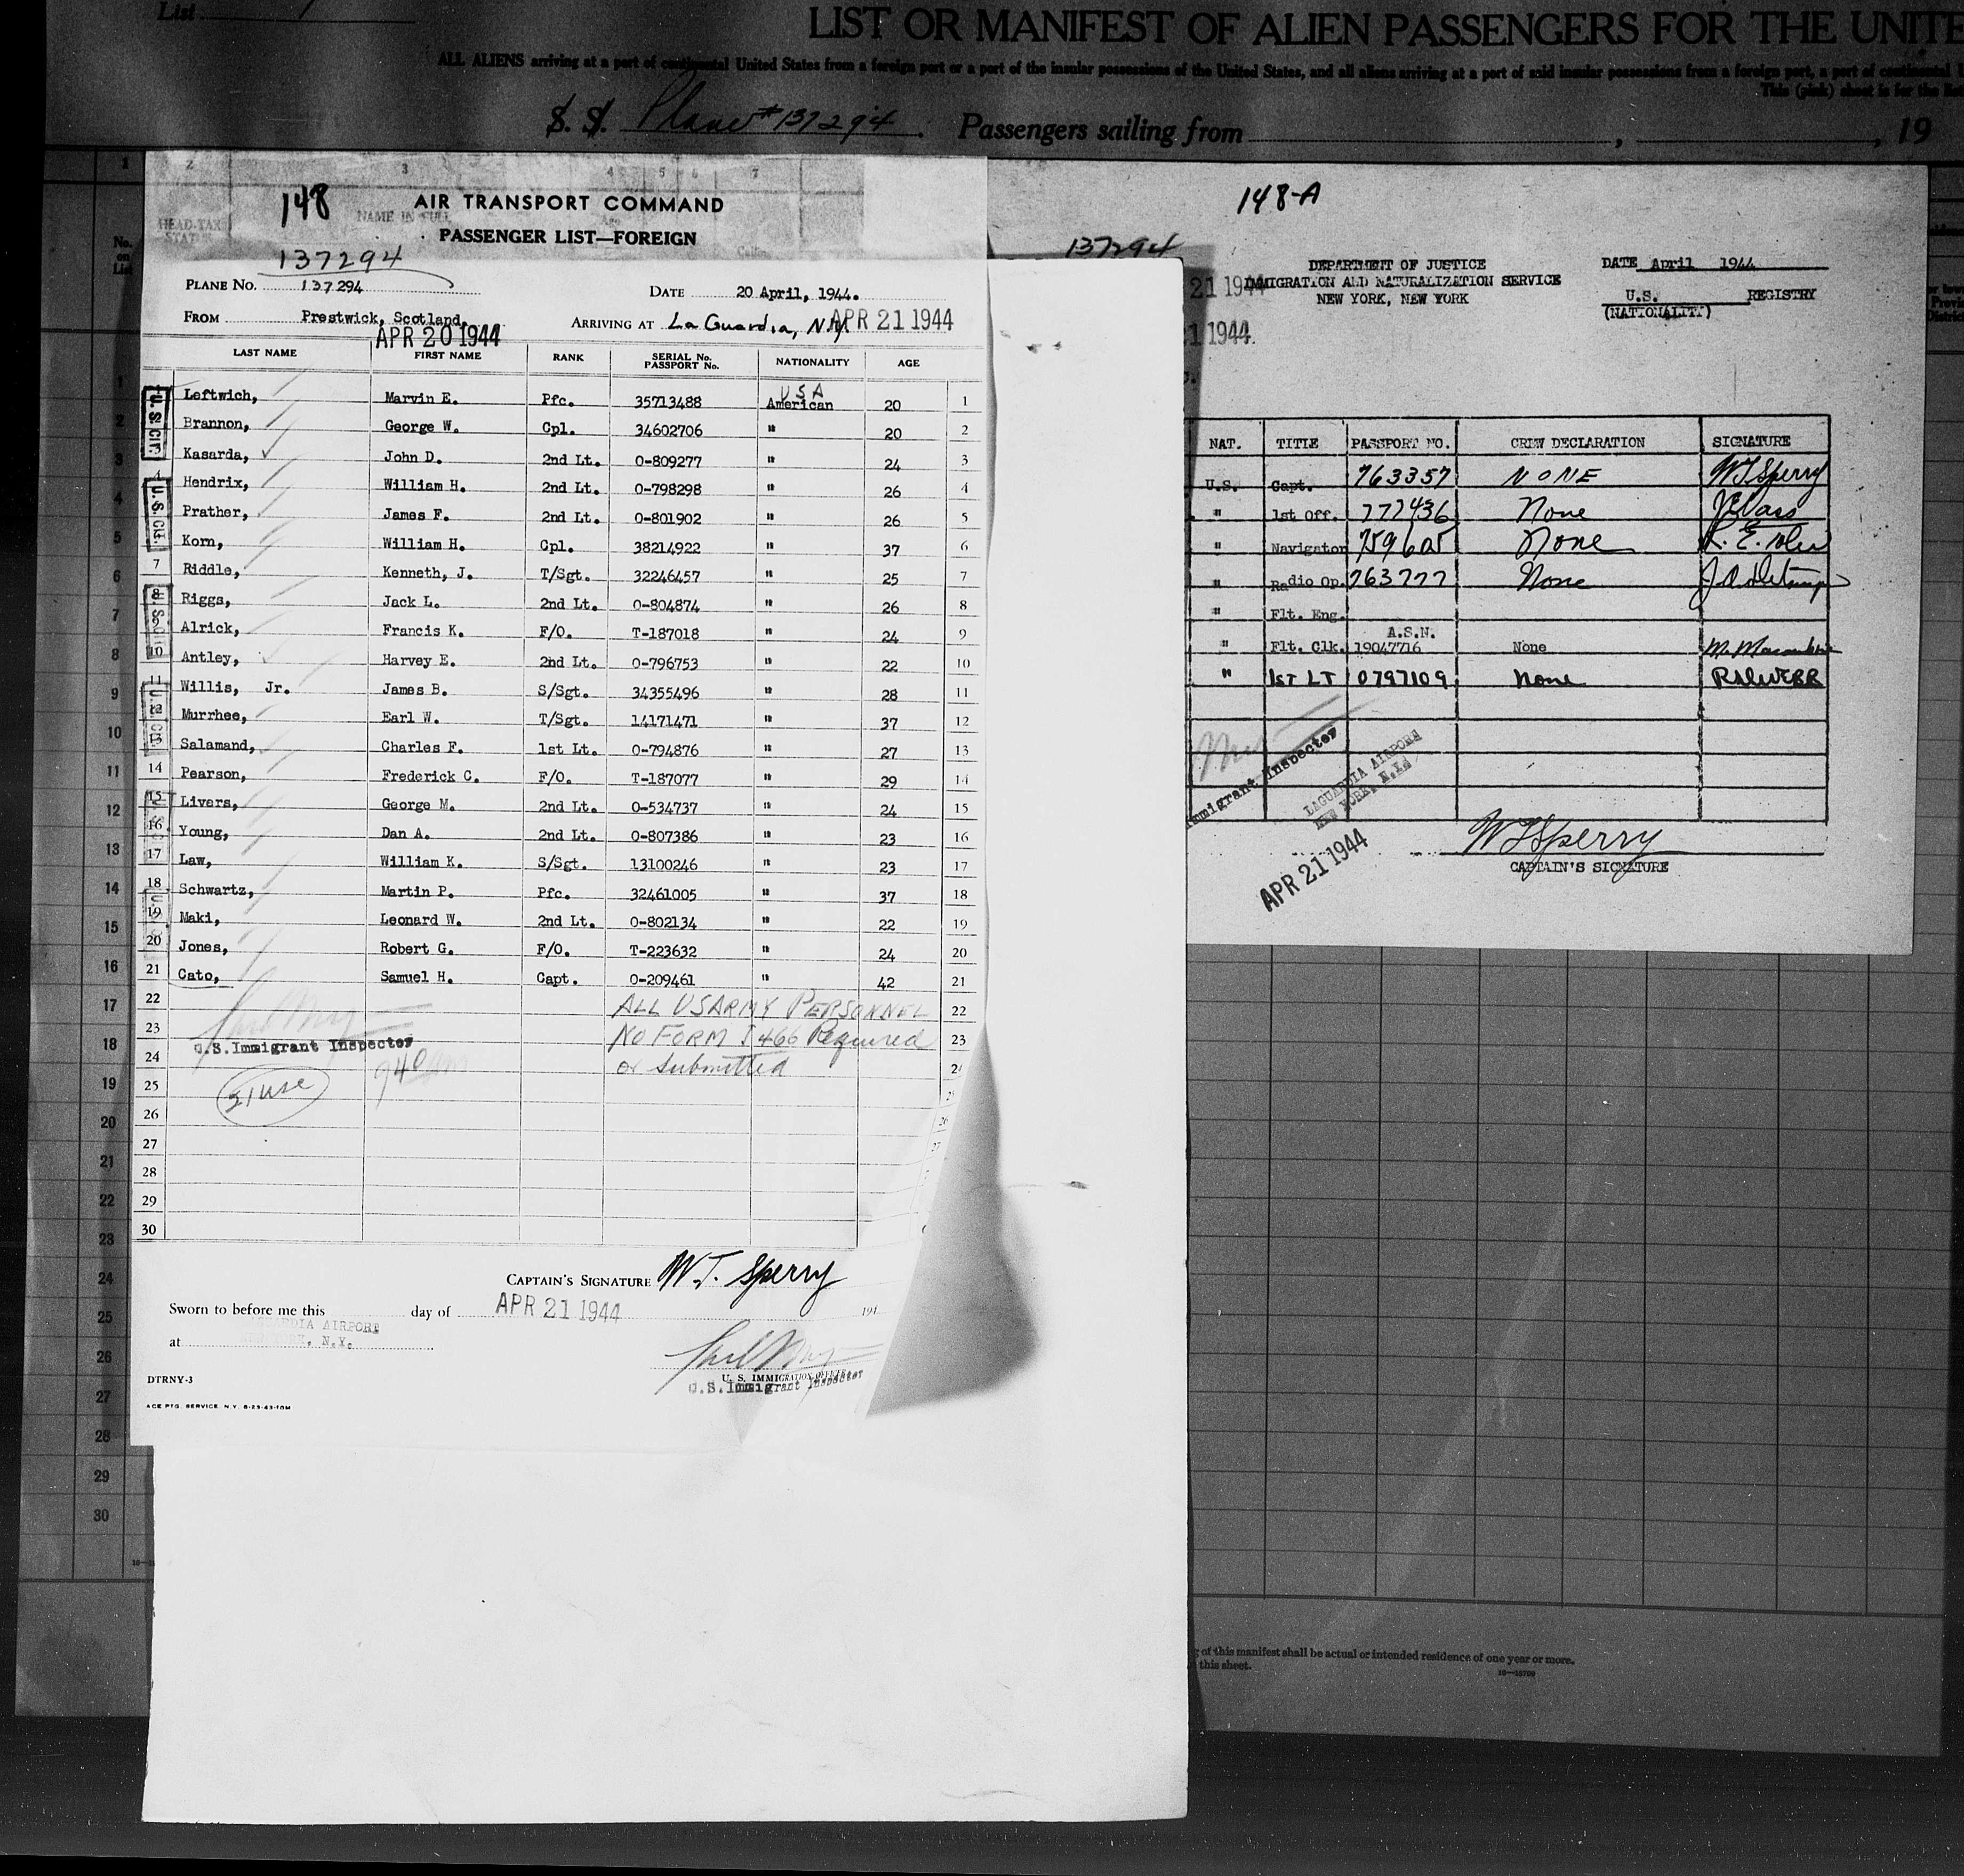 List
LIST OR MANIFEST OF ALIEN PASSENGERS FOR THE UNITE
ALL ALIENS arriving at a port of continental United States from a foreign port or a port of the insular possessions of the United States, and all aliens arriving at a port of said insular possessions from a foreign port, a port of continental
This (pink) sheet is for the
S. S. Plane #137294 Passengers sailing from , , 19
148
AIR TRANSPORT COMMAND
PASSENGER LIST—FOREIGN
137294
PLANE NO. 137294 DATE 20 April, 1944.
FROM Prestwick, Scotland, ARRIVING AT La Guardia, N.Y. APR 21 1944
APR 20 1944
LAST NAME FIRST NAME RANK SERIAL No. PASSPORT No. NATIONALITY AGE
USA
1 Leftwich, Marvin E. Pfc. 35713488 American 20 1
2 Brannon, George W. Cpl. 34602706 " 20 2
3 Kasarda, John D. 2nd Lt. O-809277 " 24 3
4 Hendrix, William H. 2nd Lt. O-798298 " 26 4
5 Prather, James F. 2nd Lt. O-801902 " 26 5
Korn, William H. Cpl. 38214922 " 37 6
7 Riddle, Kenneth, J. T/Sgt. 32246457 " 25 7
8 Riggs, Jack L. 2nd Lt. O-804874 " 26 8
Alrick, Francis K. F/O. T-187018 " 24 9
10 Antley, Harvey E. 2nd Lt. O-796753 " 22 10
11 Willis, Jr. James B. S/Sgt. 34355496 " 28 11
12 Murrhee, Earl W. T/Sgt. 14171471 " 37 12
13 Salamand, Charles F. 1st Lt. O-794876 " 27 13
14 Pearson, Frederick C. F/O. T-187077 " 29 14
15 Livers, George M. 2nd Lt. O-534737 " 24 15
16 Young, Dan A. 2nd Lt. O-807386 " 23 16
17 Law, William K. S/Sgt. 13100246 " 23 17
18 Schwartz, Martin P. Pfc. 32461005 " 37 18
19 Maki, Leonard W. 2nd Lt. O-802134 " 22 19
20 Jones, Robert G. F/O. T-223632 " 24 20
21 Cato, Samuel H. Capt. O-209461 " 42 21
22 ALL US ARMY PERSONNEL 22
23 NO FORM I 466 Required 23
U.S. Immigrant Inspector
24 or Submitted
25 21 USC 940 am
26
27
28
29
30
CAPTAIN'S SIGNATURE W.T. Sperry
Sworn to before me this day of APR 21 1944 194
at LAGUARDIA AIRPORT
NEW YORK, N.Y.
U. S. IMMIGRATION OFFICER
U.S. Immigrant Inspector
DTRNY-3
ACE PTG. SERVICE, N.Y. 8-25-43-10M
148-A
137294
DEPARTMENT OF JUSTICE
IMMIGRATION AND NATURALIZATION SERVICE
NEW YORK, NEW YORK
DATE April 1944
U.S. REGISTRY
(NATIONALITY)
21 1944
21 1944
NAT. TITLE PASSPORT NO. CREW DECLARATION SIGNATURE
U.S. Capt. 763357 NONE WTSperry
" 1st Off. 777436 None
" Navigator None
" Radio Op. 763777 None
" Flt. Eng.
A.S.N.
" Flt. Clk. 19047716 None
" 1ST LT 0797109 None RALWEBB
Immigrant Inspector
LAGUARDIA AIRPORT
NEW YORK N.Y.
APR 21 1944
WTSperry
CAPTAIN'S SIGNATURE
of this manifest shall be actual or intended residence of one year or more.
this sheet.